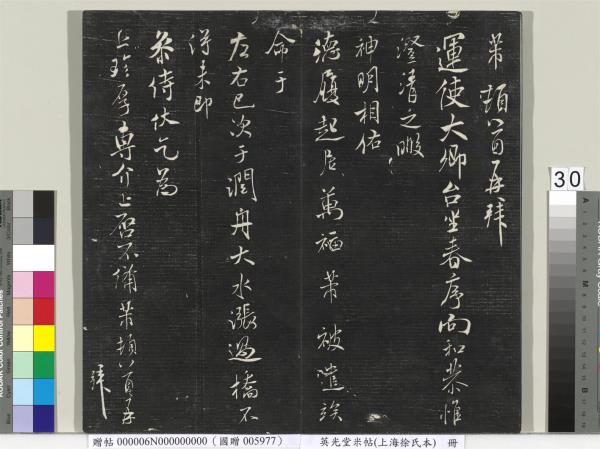 芾頓首再拜
運使大卿台坐春序向和恭惟
澄清之暇
神明相佑
德履起居萬福芾被遣詣
命于
左右已次于潤舟大水漲過橋不
得來即
參侍伏乞為
上珍厚專介上啓不備芾頓首再
拜
30
贈帖 000006N000000000（國贈 005977）
英光堂米帖(上海徐氏本) 冊